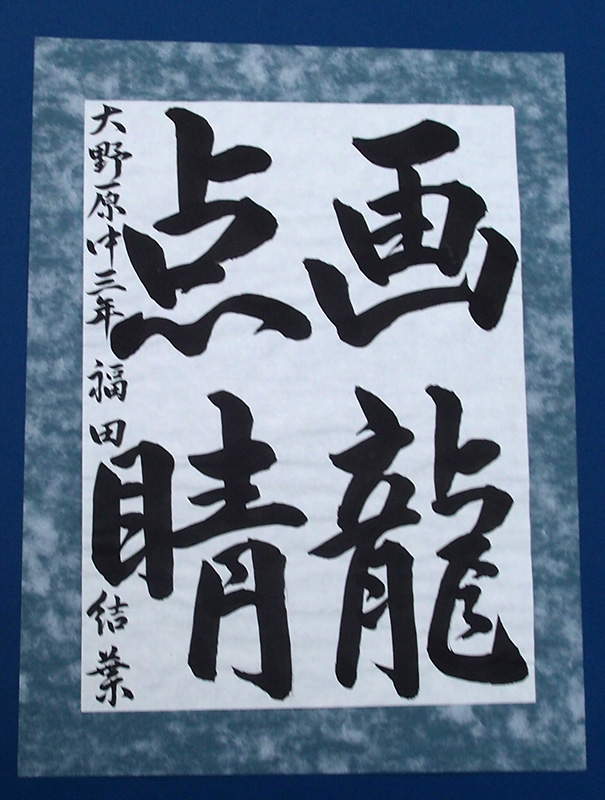 画龍
点睛
大野原中三年 福田 結葉